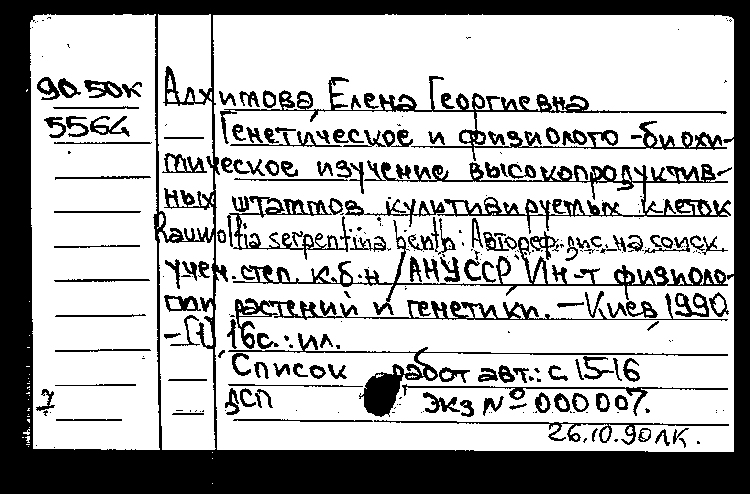 90.50к Алхимова, Елена Георгиевна
5564 Генетическое и физиолого-биохи-
мическое изучение высокопродуктив-
ных штаммов культивируемых клеток
Rauwolfia serpentina benth: Автореф. дис. на соиск.
учен. степ. к.б.н / АН УССР Ин-т физиоло-
гии растений и генетики. — Киев, 1990.
– [1], 16с.: ил.
Список работ авт.: с. 15-16
7 ДСП Экз № 000007.
26.10.90 ЛК.